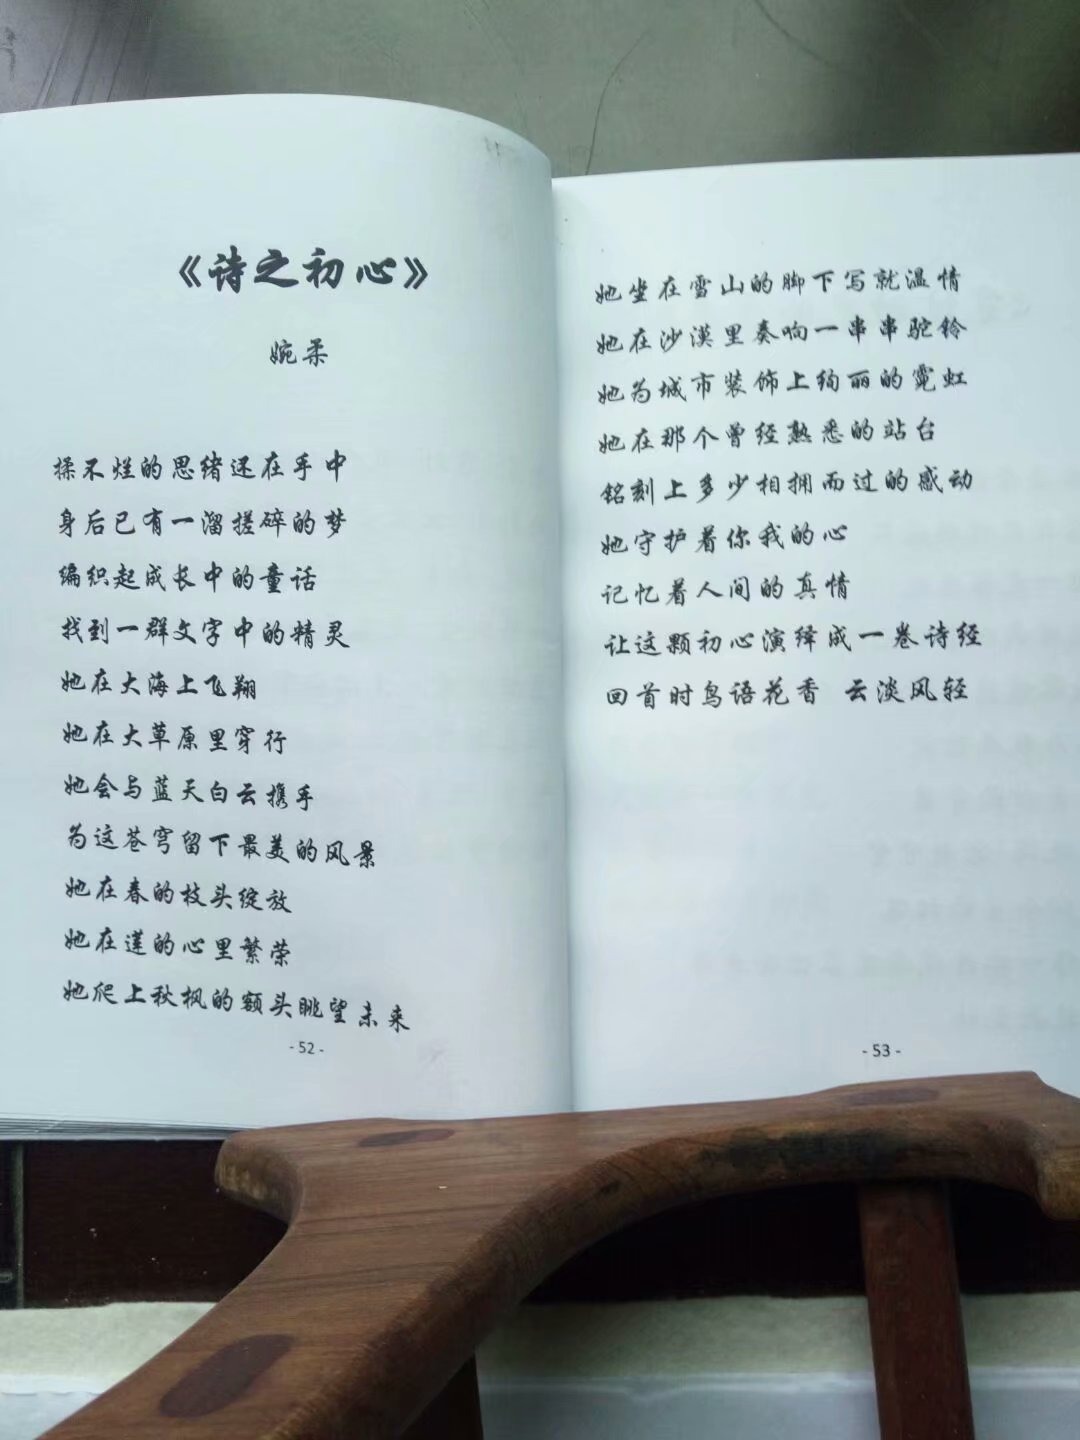 《诗之初心》
婉柔
揉不烂的思绪还在手中
身后已有一溜搓碎的梦
编织起成长中的童话
找到一群文字中的精灵
她在大海上飞翔
她在大草原里穿行
她会与蓝天白云携手
为这苍穹留下最美的风景
她在春的枝头绽放
她在莲的心里繁荣
她爬上秋枫的额头眺望未来
- 52 -
她坐在雪山的脚下写就温情
她在沙漠里奏响一串串驼铃
她为城市装饰上绚丽的霓虹
她在那个曾经熟悉的站台
铭刻上多少相拥而过的感动
她守护着你我的心
记忆着人间的真情
让这颗初心演绎成一卷诗经
回首时鸟语花香 云淡风轻
- 53 -